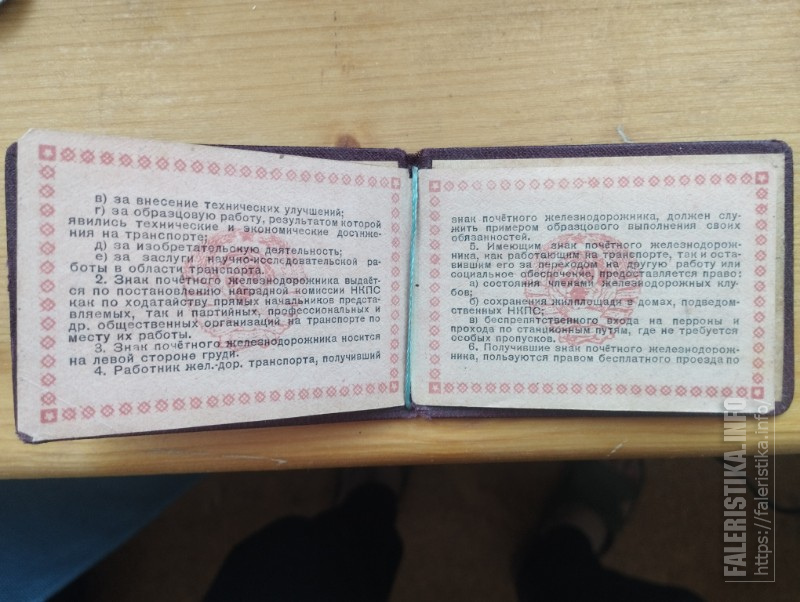 в) за внесение технических улучшений;
г) за образцовую работу, результатом которой
явились технические и экономические достиже-
ния на транспорте;
д) за изобретательскую деятельность;
е) за заслуги научно-исследовательской ра-
боты в области транспорта.
2. Знак почётного железнодорожника выдаёт-
ся по остановлению наградной комиссии НКПС
как по ходатайству прямых начальников предста-
вляемых, так и партийных, профессиональных и
др. общественных организаций на транспорте по
месту их работы.
3. Знак почётного железнодорожника носится
на левой стороне груди.
4. Работник жел.-дор. транспорта, получивший
знак почётного железнодорожника, должен слу-
жить примером образцового выполнения своих
обязанностей.
5. Имеющим знак почётного железнодорож-
ника, как работающим на транспорте, так и оста-
вившим его за переходом на другую работу или
социальное обеспечение, предоставляется право:
а) состояния членами железнодорожных клу-
бов;
б) сохранения жилплощади в домах, подведом-
ственных НКПС;
в) беспрепятственного входа на перроны и
прохода по станционным путям, где не требуется
особых пропусков.
6. Получившие знак почётного железнодорож-
ника, пользуются правом бесплатного проезда по
FALERISTIKA.INFO
https://faleristika.info